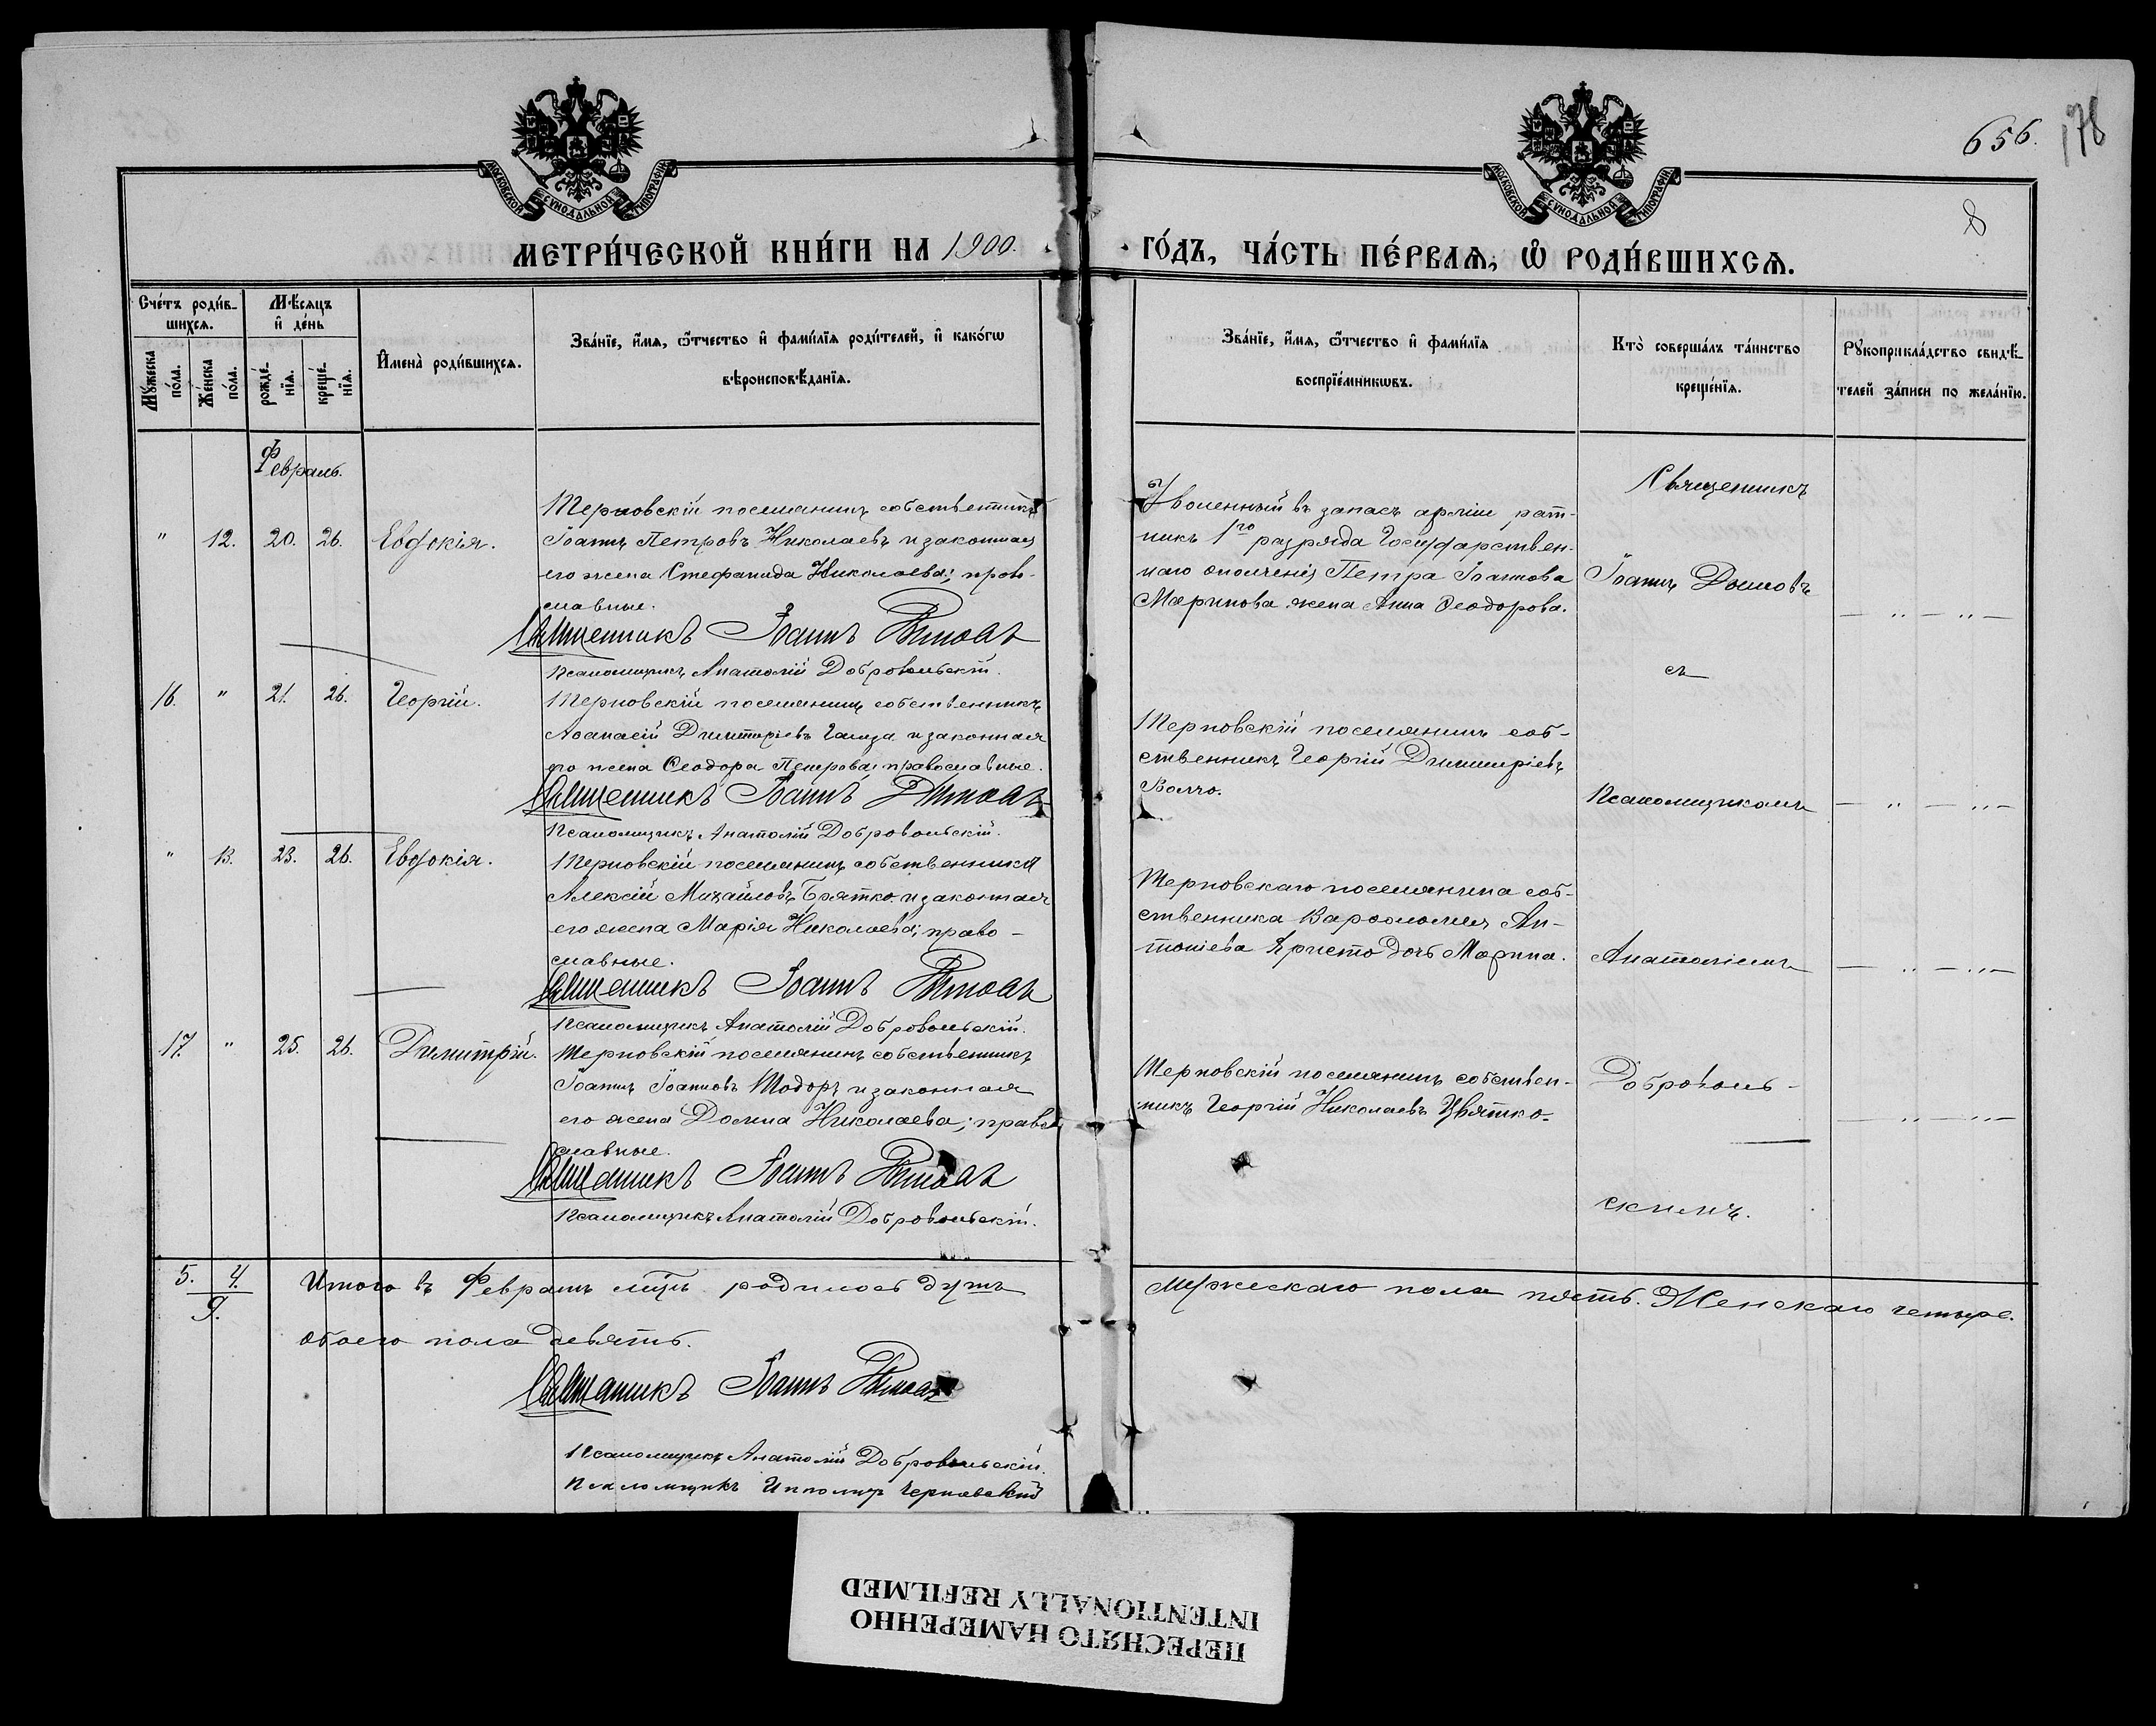 656.
178
8
МОСКОВСКОЙ СУНОДАЛЬНОЙ ТИПОГРАФІИ
МОСКОВСКОЙ СУНОДАЛЬНОЙ ТИПОГРАФІИ
МЕТРИ́ЧЕСКОЙ КНИ́ГИ НА 1900.
ГО́ДЪ, ЧА́СТЬ ПЕ́РВАѦ, Ѡ РОДИ́ВШИХСѦ.
Сче́тъ роди́в-
шихсѧ.
Мꙋжеска по́ла.
Же́нска по́ла.
Мѣ́сѧцъ
и҆ де́нь
рожде́-
нїѧ.
креще́-
нїѧ.
И҆мена̀ роди́вшихсѧ.
Зва́нїе, и҆́мѧ, ѻ҆́тчество и҆ фами́лїѧ роди́телей, и҆ како́гѡ
вѣроисповѣ́данїѧ.
Зва́нїе, и҆́мѧ, ѻ҆́тчество и҆ фами́лїѧ
воспрїе́мникѡвъ.
Кто̀ соверша́лъ та́инство
креще́нїѧ.
Рꙋкоприкла́дство свидѣ́-
телей за́писи по жела́нїю.
Февраль.
" 12. 20. 26. Евдокія.
Терновскій поселянинъ собственникъ
Іоаннъ Петровъ Николаевъ и законная
его жена Стефанида Николаева; право-
славные.
Священникъ Іоаннъ
Псаломщикъ Анатолій Добровольскій.
Уволенный въ запасъ арміи рат-
никъ 1го разряда Государствен-
наго ополченія Петра Іоаннова
Маринова жена Анна Ѳеодорова.
Священникъ
Іоаннъ
съ
— " — " —
16. " 21. 26. Георгій.
Терновскій поселянинъ собственникъ
Аѳанасій Димитріевъ и законная
его жена Ѳеодора Петрова; православные.
Священникъ Іоаннъ
Псаломщикъ Анатолій Добровольскій.
Терновскій поселянинъ соб-
ственникъ Георгій Димитріевъ
Волчо.
Псаломщикомъ
— " — " —
" 13. 23. 26. Евдокія.
Терновскій поселянинъ собственникъ
Алексій Михайловъ Братко и законная
его жена Марія Николаева; право-
славные.
Священникъ Іоаннъ
Псаломщикъ Анатолій Добровольскій.
Терновскаго поселянина соб-
ственника Варѳоломея Ан-
тоніева Христо дочь Марина.
Анатоліемъ
— " — " —
17. " 25. 26. Димитрій.
Терновскій поселянинъ собственникъ
Іоаннъ Іоанновъ Тодоръ и законная
его жена Домна Николаева; право-
славные.
Священникъ Іоаннъ
Псаломщикъ Анатолій Добровольскій.
Терновскій поселянинъ собствен-
никъ Георгій Николаевъ Цвятко.
Доброволь-
скимъ.
— " — " —
5. 4.
9.
Итого въ Февралѣ мцѣ родилось душъ
мужескаго пола пять. Женскаго четыре.
обоего пола девять.
Священникъ Іоаннъ
Псаломщикъ Анатолій Добровольскій.
Псаломщикъ Чернявскій
ПЕРЕСНЯТО НАМЕРЕННО
INTENTIONALLY REFILMED